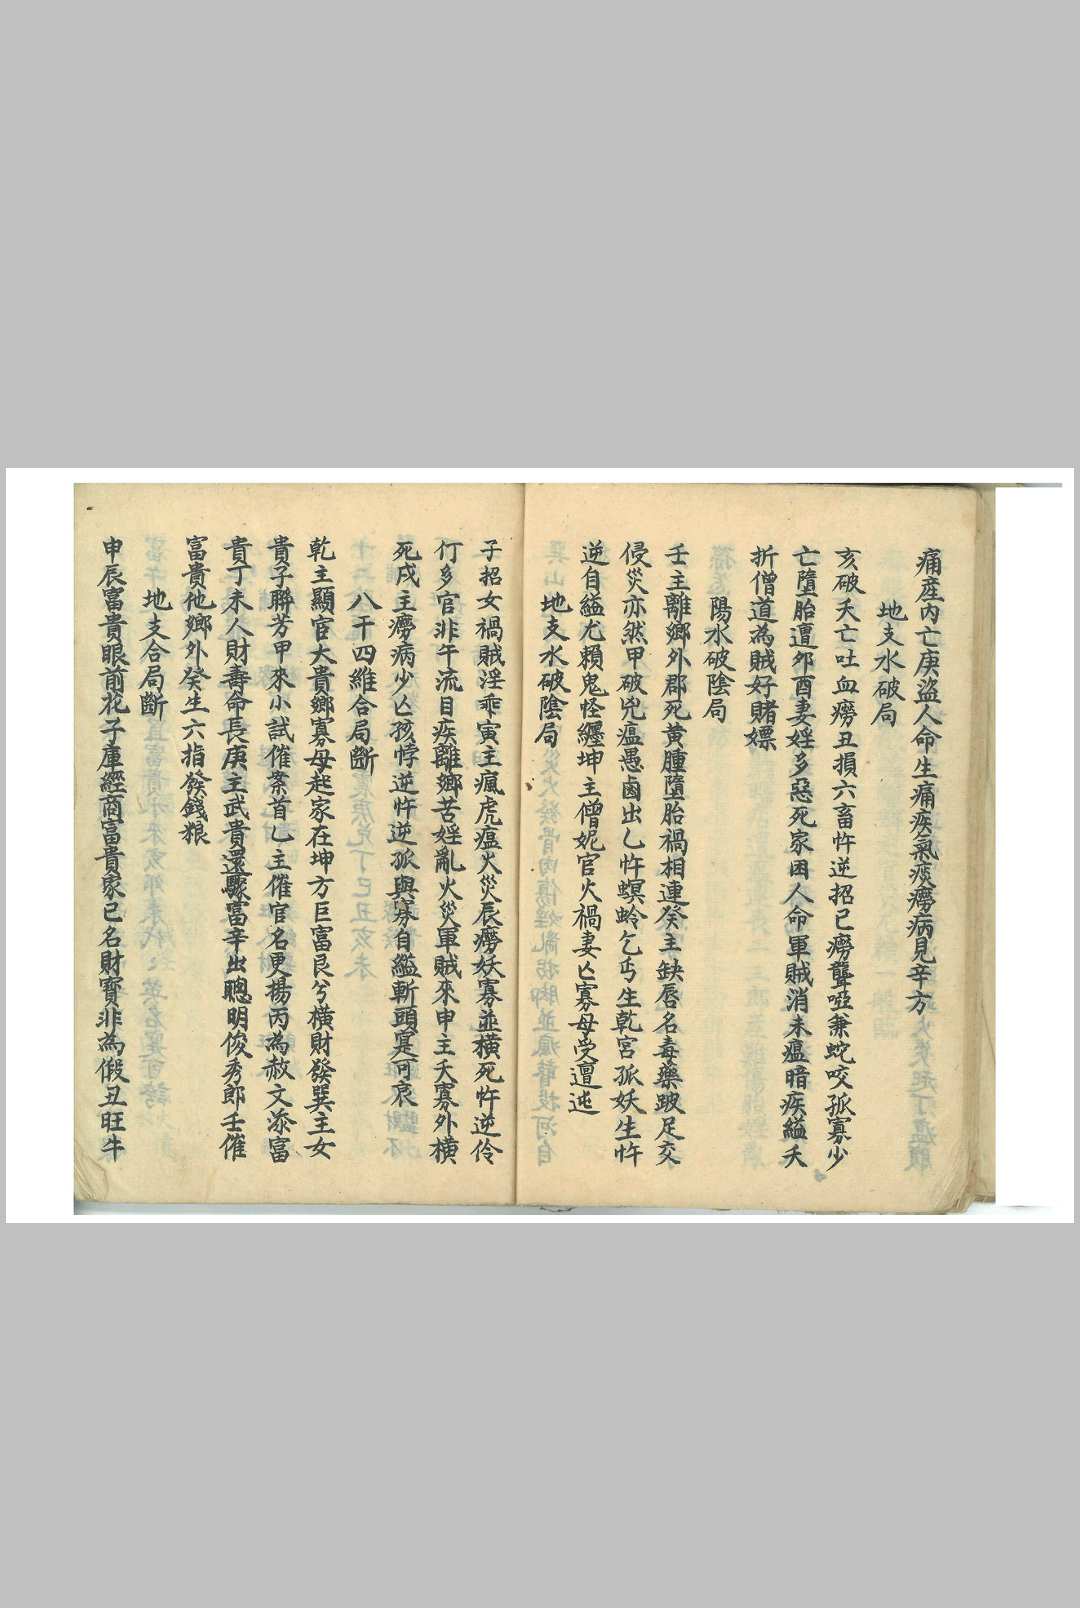 痛産内亡庚盜人命生痛疾氣痰癆病見辛方
地支水破局
亥破夭亡吐血癆丑損六畜忤逆招巳癆聾啞兼蛇咬孤寡少
亡墮胎遭夘酉妻婬多惡死家困人命軍賊消未瘟暗疾縊夭
折僧道為賊好賭嫖
陽水破陰局
壬主離鄉外郡死黄腫墮胎禍相連癸主缺唇名毒藥跛足交
侵災亦然甲破兇瘟愚鹵出乙忤螟蛉乞丐生乾宮孤妖生忤
逆自縊尤賴鬼怪纏坤主僧妮官火禍妻亡寡母受邅迍
地支水破陰局
子招女禍賊淫乖寅主瘋虎瘟火災辰癆妖寡並橫死忤逆伶
仃多官非午流目疾離鄉苦婬亂火災軍賊來申主夭寡外横
死戌主癆病少亡孩悖逆忤逆孤與寡自縊斬頭寔可哀
八干四維合局斷
乾主顯官大貴鄉寡母起家在坤方巨富艮兮橫財發巽主女
貴子聯芳甲來小試催案首乙主催官名更揚丙為赦文添富
貴丁未人財壽命長庚主武貴還驟富辛出聰明俊秀郎壬催
富貴他鄉外癸生六指發錢粮
地支合局斷
申辰富貴眼前花子庫經商富貴家巳名財寶非為假丑旺牛